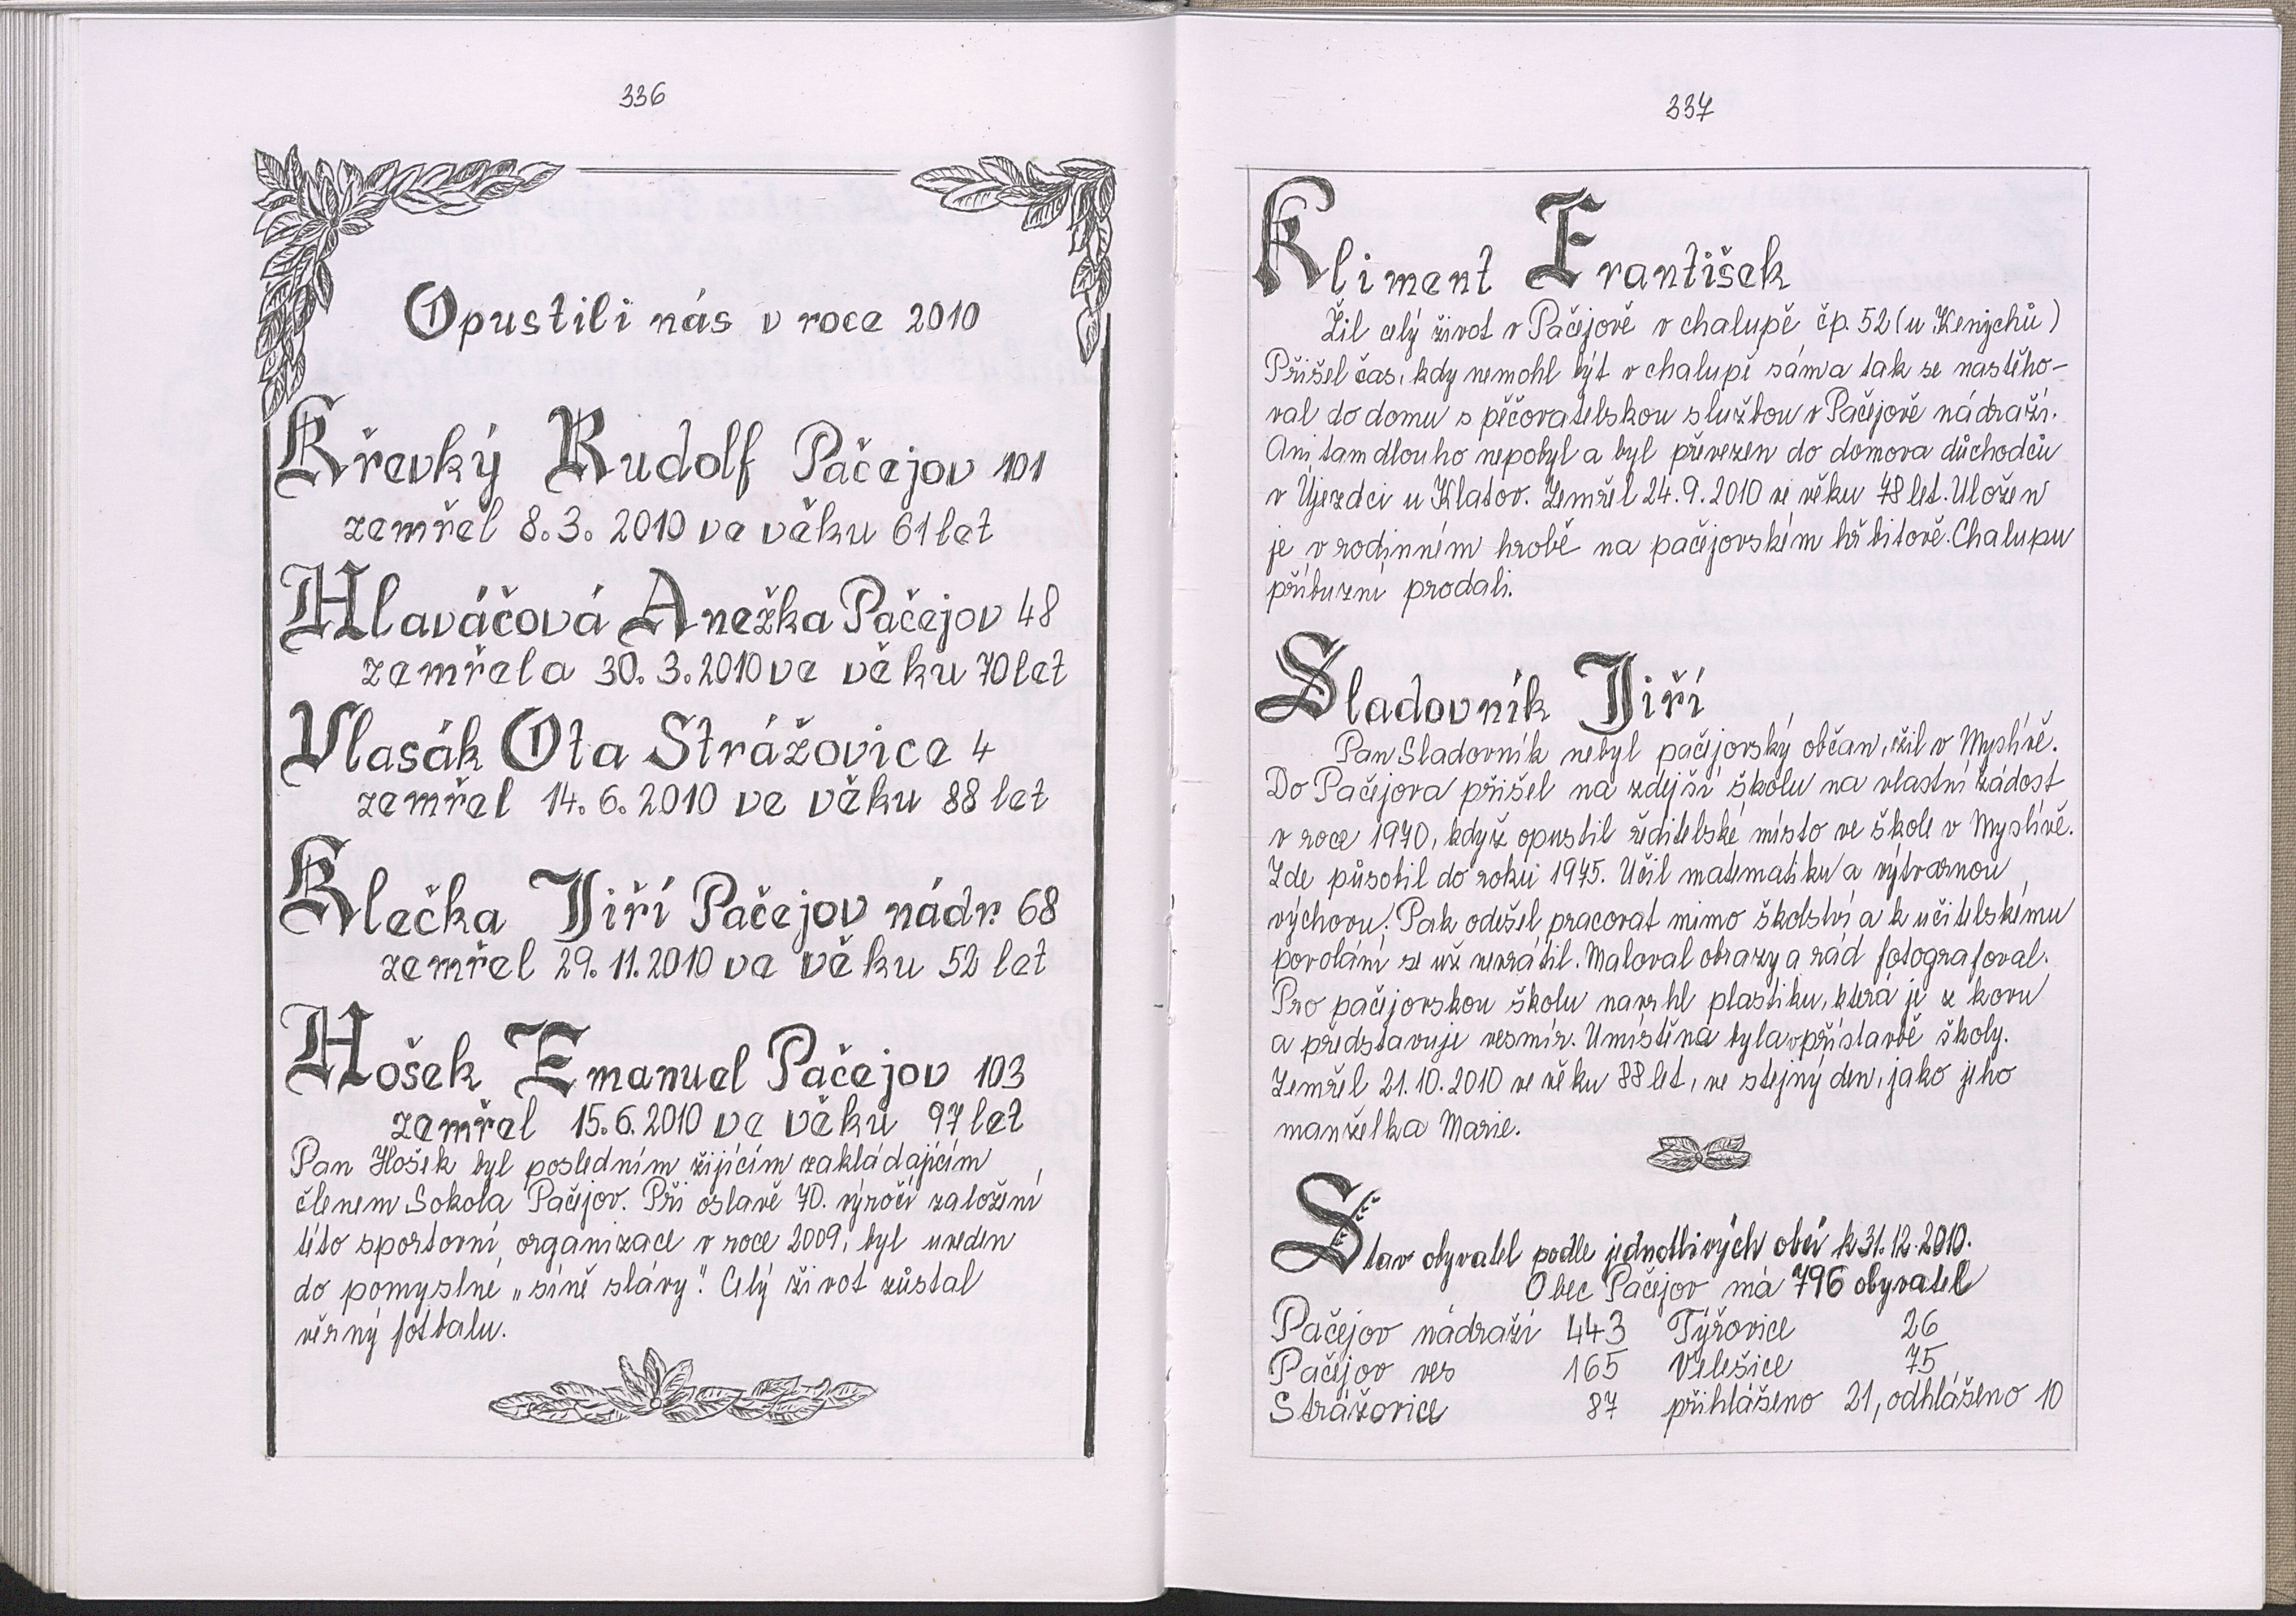 336
Opustili nás v roce 2010
Křevký Rudolf Pačejov 101
zemřel 8.3. 2010 ve věku 61 let
Hlaváčová Anežka Pačejov 48
zemřela 30.3.2010 ve věku 70 let
Vlasák Ota Strážovice 4
zemřel 14.6.2010 ve věku 88 let
Klečka Jiří Pačejov nádr. 68
zemřel 29.11.2010 ve věku 52 let
Hošek Emanuel Pačejov 103
zemřel 15.6.2010 ve věku 97 let
Pan Hošek byl posledním žijícím zakládajícím
členem Sokola Pačejov. Při oslavě 70. výročí založení
této sportovní organizace v roce 2009, byl uveden
do pomyslné „síně slávy". Celý život zůstal
věrný fotbalu.
337
Kliment František
Žil celý život v Pačejově v chalupě čp. 52 (u Kenychů)
Přišel čas, kdy nemohl být v chalupě sám a tak se nastěho-
val do domu s pěčovatelskou službou v Pačejově nádraží.
Ani tam dlouho nepobyl a byl převezen do domova důchodců
v Újezdci u Klatov. Zemřel 24.9.2010 ve věku 78 let. Uložen
je v rodinném hrobě na pačejovském hřbitově. Chalupu
příbuzní prodali.
Sladovník Jiří
Pan Sladovník nebyl pačejovský občan, žil v Myslívě.
Do Pačejova přišel na zdejší školu na vlastní žádost
v roce 1970, když opustil ředitelské místo ve škole v Myslívě.
Zde působil do roku 1975. Učil matematiku a výtvarnou
výchovu. Pak odešel pracovat mimo školství a k učitelskému
povolání se už nevrátil. Maloval obrazy a rád fotografoval.
Pro pačejovskou školu navrhl plastiku, která je z kovu
a představuje vesmír. Umístěna byla v přístavbě školy.
Zemřel 21.10.2010 ve věku 88 let, ve stejný den, jako jeho
manželka Marie.
Stav obyvatel podle jednotlivých obcí k 31.12.2010.
Obec Pačejov má 796 obyvatel
Pačejov nádraží 443 Týřovice 26
Pačejov ves 165 Velešice 75
Strážovice 87 přihlášeno 21, odhlášeno 10